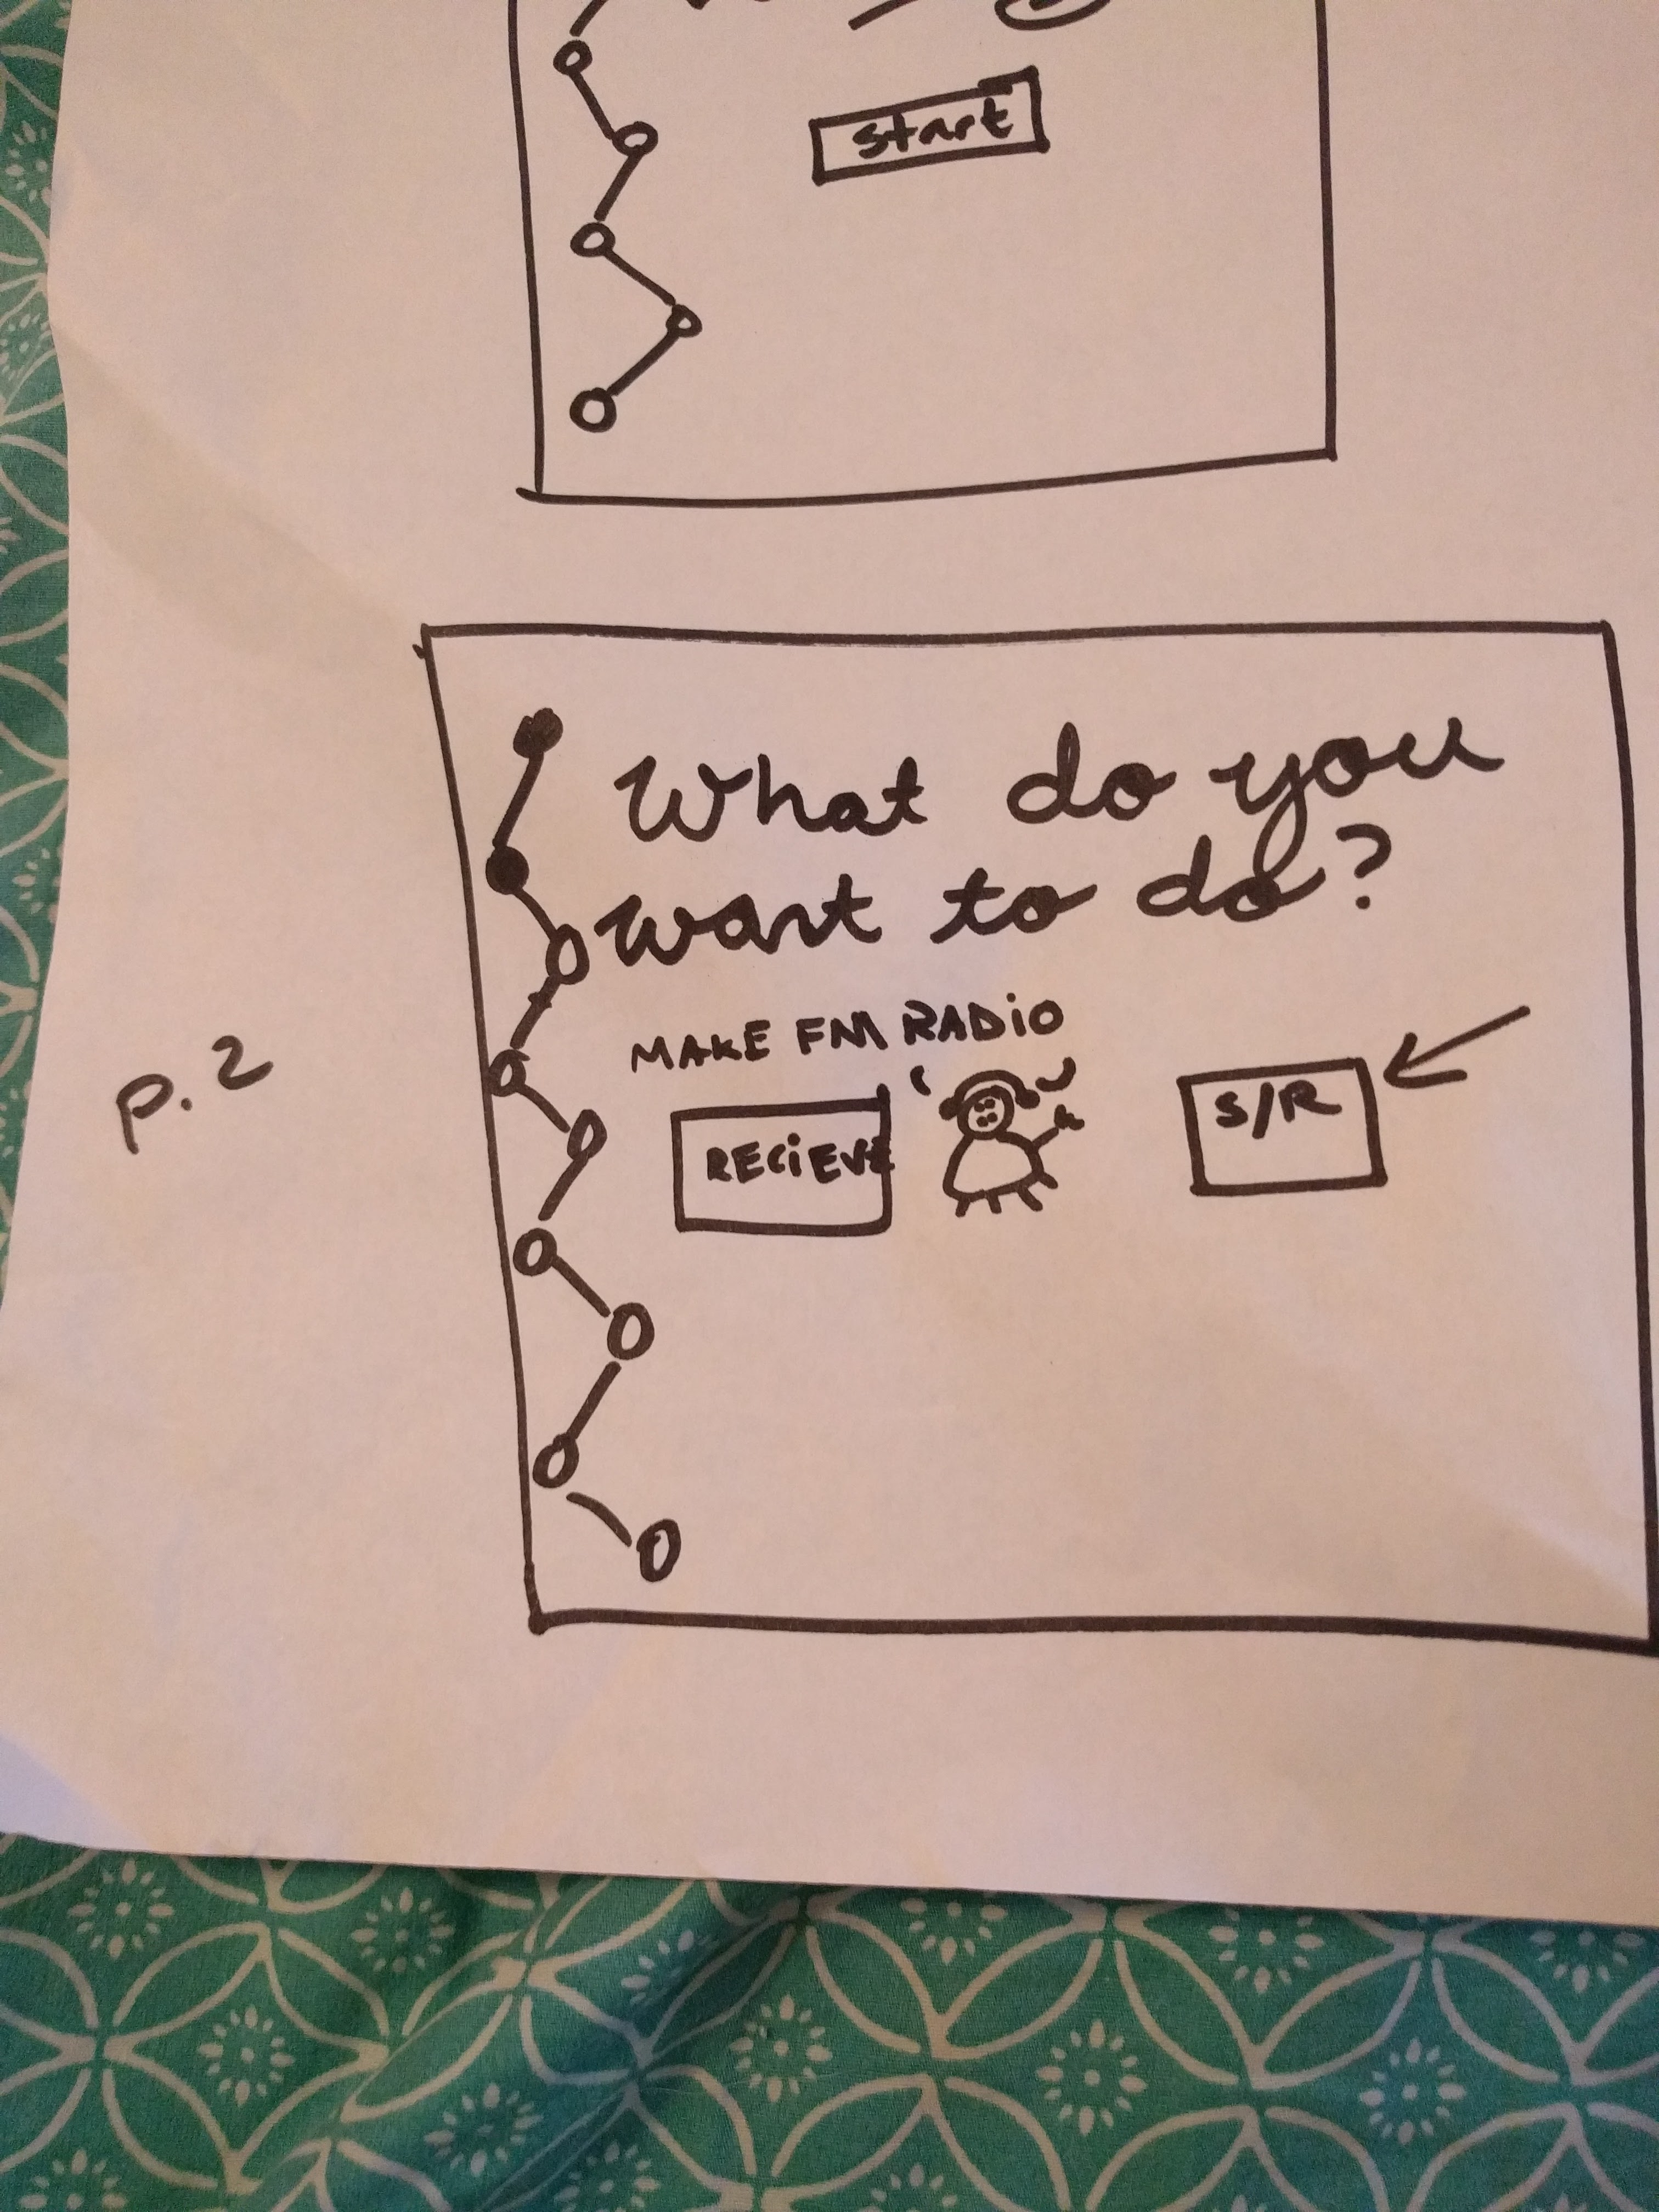 start
p.2
What do you
want to do?
MAKE FM RADIO
RECIEVE
S/R